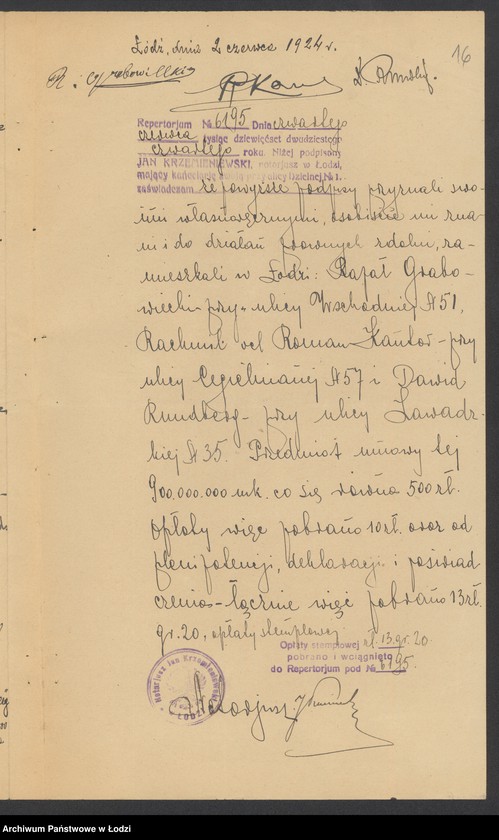 16
Łódź, dnia 2 czerwca 1924 r.
R. Grabowiecki
RKan
D. Rundb
Repertorjum № 6195 Dnia czwartego
czerwca tysiąc dziewięćset dwudziestego
czwartego roku. Niżej podpisany
JAN KRZEMIENIEWSKI, notarjusz w Łodzi,
mający kancelarję swoją przy ulicy Dzielnej № 1.
zaświadczam że powyższe podpisy przyznali swo-
imi własnoręcznymi, osobiście mi zna-
ni i do działań prawnych zdolni, za-
mieszkali w Łodzi: Rafał Grabo-
wiecki przy ulicy Wschodniej № 51,
Rachmil vel Roman Kantor – przy
ulicy Cegielnianej № 57 i Dawid
Rundberg – przy ulicy Zawadz-
kiej № 35. Przedmiot umowy tej
900.000.000 mk. co się równa 500 zł.
Opłaty więc pobrano 10 zł. oraz od
plenipotencji, deklaracji i poświad
czenia – łącznie więc pobrano 13 zł.
gr. 20, opłaty stemplowej
Opłaty stemplowej zł. 13 gr. 20
pobrano i wciągnięto
do Repertorjum pod № 6195.
Notarjusz Jan Krzemieniewski
ŁÓDŹ
Notarjusz J
Archiwum Państwowe w Łodzi